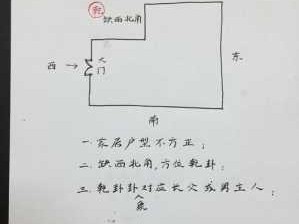 乾
缺西北角
西 → 大门
东
南
一. 东屋户型不方正;
二. 缺西北角,方位乾卦;
三. 乾卦卦对应长父或男主人;
象